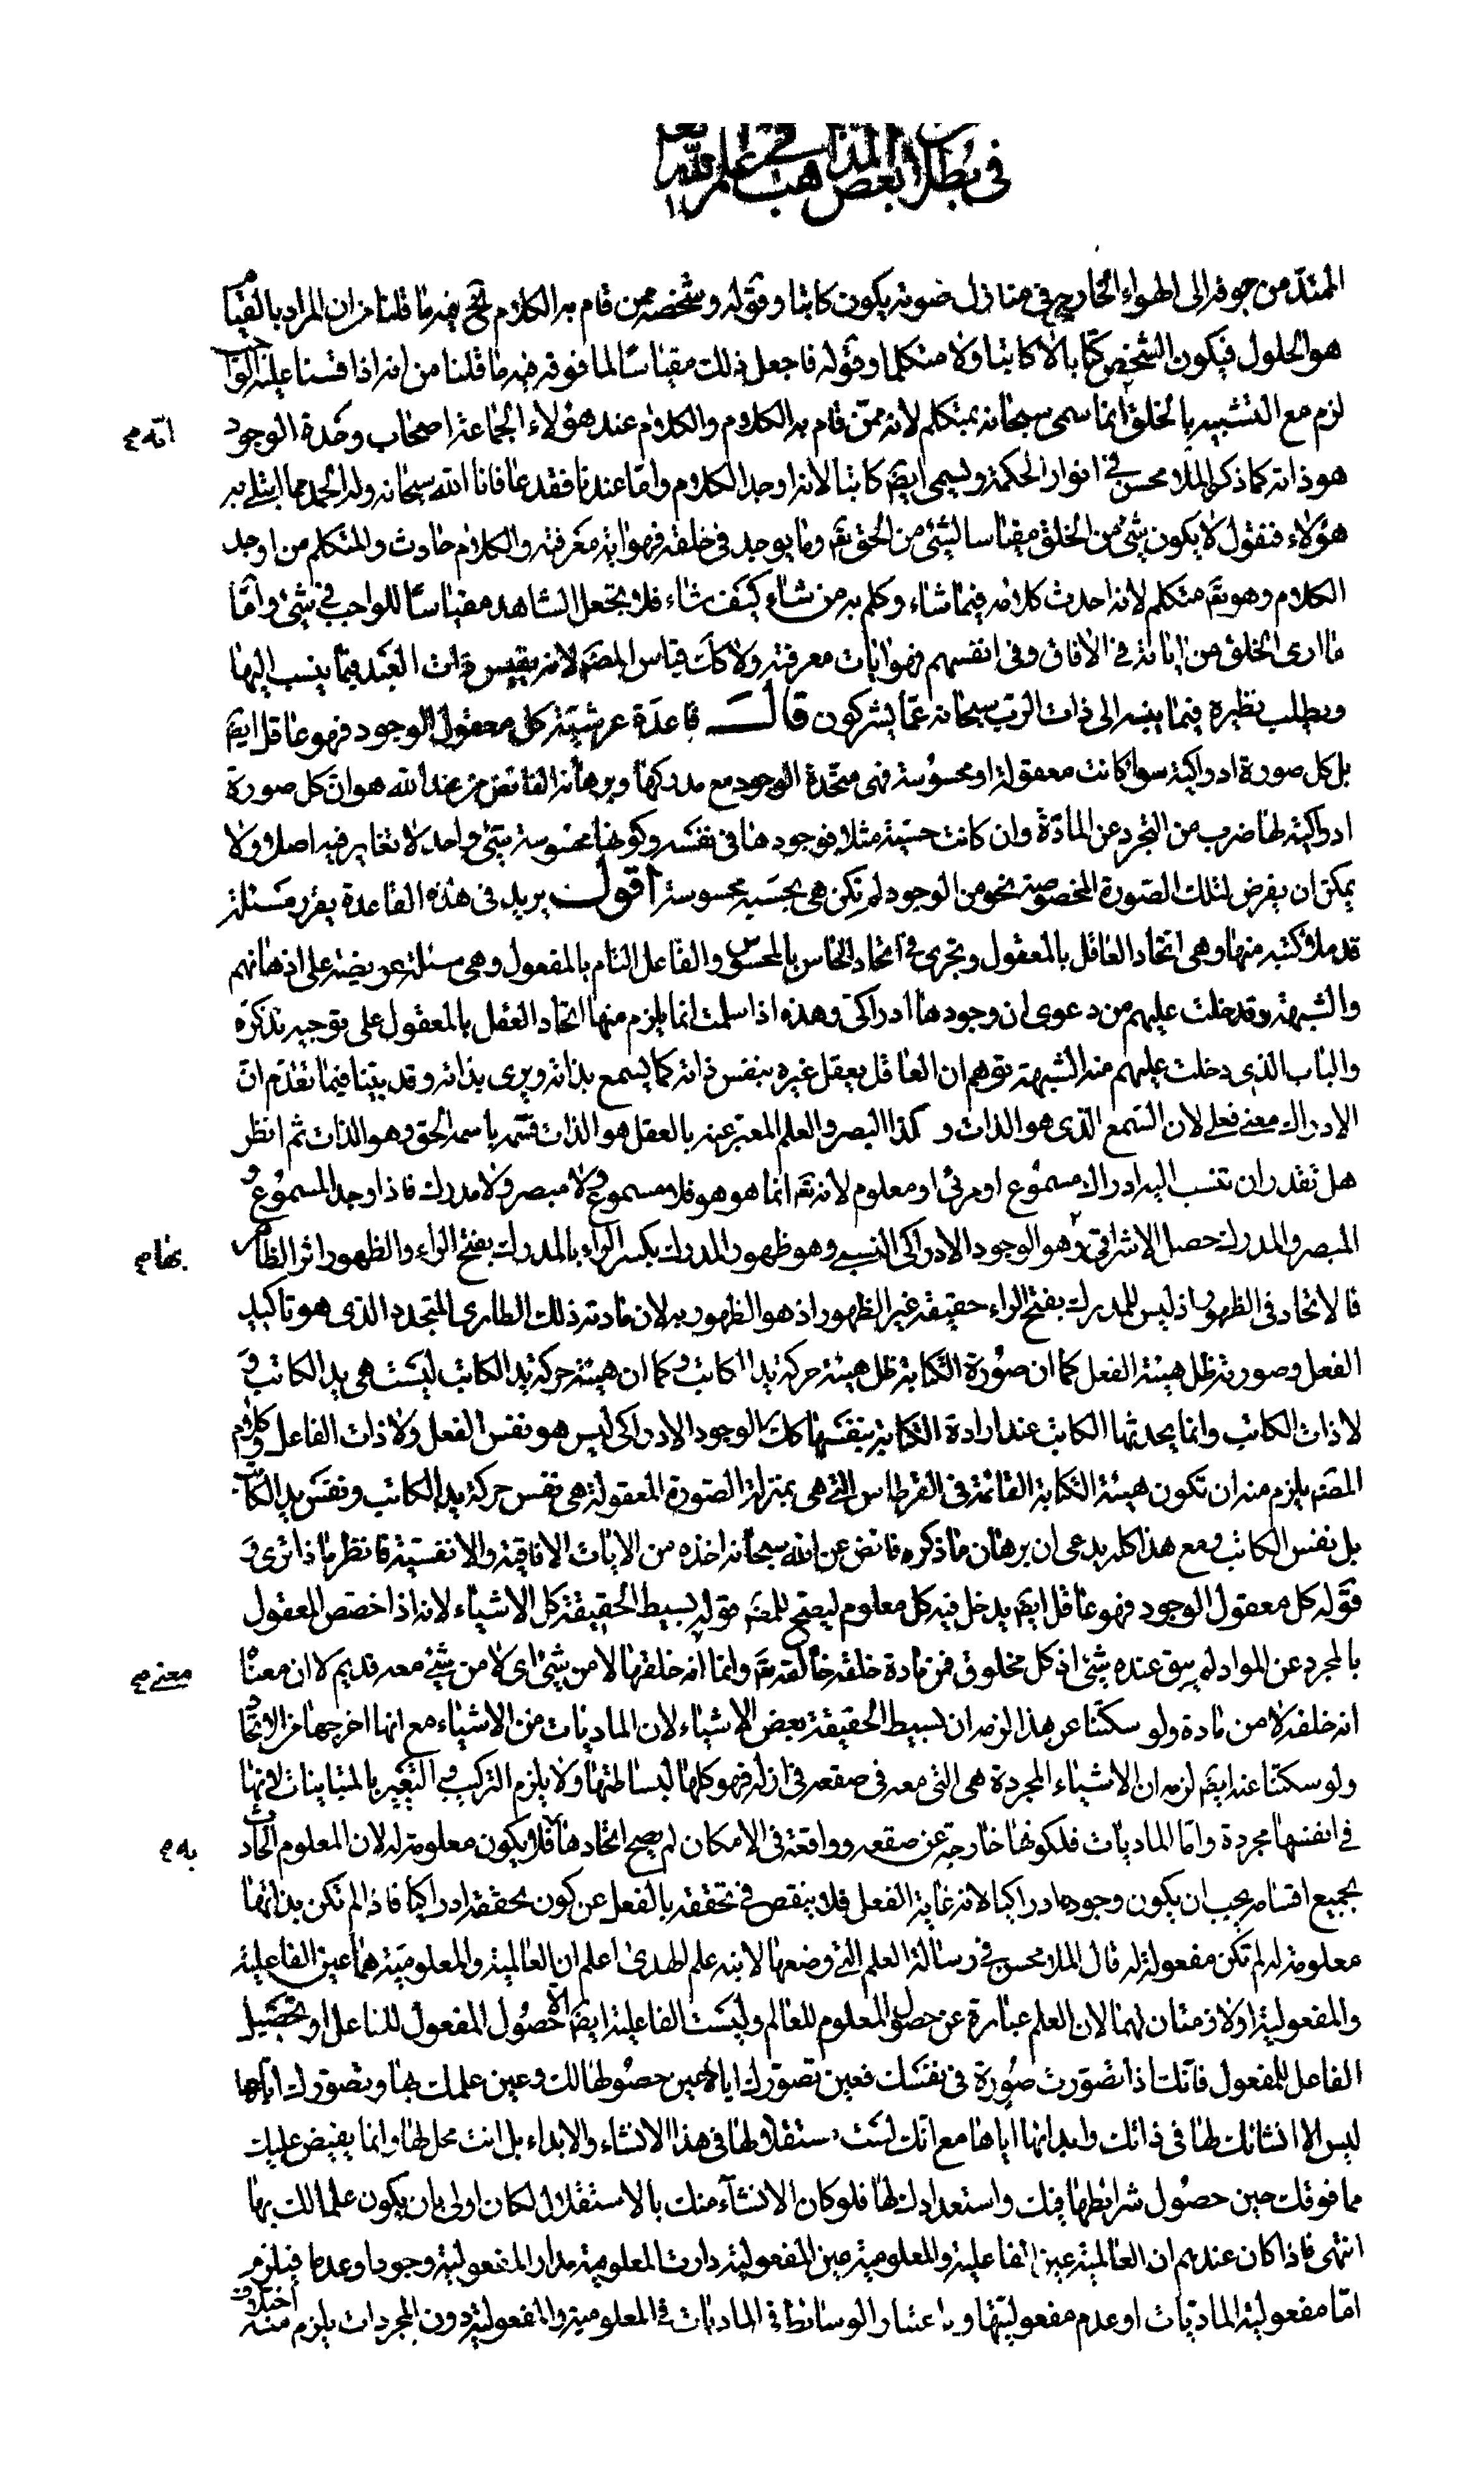 في بطلان بعض المذاهب في علم الله تعالى
الممتدّ من جوفه الى الهواء الخارج في منازل صوته يكون كاتبا وقوله وشخصه ممن قام به الكلام نحج فيه ما قلنا من ان المراد بالقيام
هو الحلول فيكون الشخص كتابا لا كاتبا ولا متكلما وقوله فاجعل ذلك مقياسًا لما فوقه فيه ما قلنا من انه اذا قسنا عليه الواجب
لزم مع التشبيه بالخلق انما سمى سبحانه بمتكلم لانه ممّن قام به الكلام والكلام عند هؤلاء الجماعة اصحاب وحدة الوجود
انه م
هو ذاته كما ذكر الملا محسن في انوار الحكمة ويسمى ايضا كاتبا لانه اوجد الكلام وامّا عندنا فقد عافانا الله سبحانه وله الحمد مما ابتلى به
هؤلاء فنقول لا يكون شيء من الخلق مقياسا لشيء من الحق تع وما يوجد في خلقه فهو اية معرفته والكلام حادث والمتكلم من اوجد
الكلام وهو تع متكلم لانه احدث كلامه فيما شاء وكلم به من شاء كيف شاء فلا يجعل الشاهد مقياسًا للواجب في شيء وامّا
ما ارى الخلق من اياته في الافاق وفي انفسهم فهو ايات معرفته ولا كك قياس المصَر لانه يقيس ذات العبد فيما ينسب اليها
ويطلب نظيره فيما ينسب الى ذات الرب سبحانه عمّا يشركون قال قاعدة عرشية كل معقول الوجود فهو عاقل ايضا
بل كل صورة ادراكية سوا كانت معقولة او محسوسة فهي متحدة الوجود مع مدركها وبرهانه الفائض من عند الله هو ان كل صورة
ادراكية لها ضرب من التجرد عن المادّة وان كانت حسيّة مثلا فوجودها في نفسه وكونها محسوسة شيء واحد لا تغاير فيه اصلا ولا
يمكن ان يفرض لتلك الصّورة المخصوصة نحو من الوجود لم تكن هي بحسبه محسوسة اقول يريد في هذه القاعدة يقرر مسئلة
قد ملأ كتبه منها وهي اتحاد العاقل بالمعقول وتجرى في اتحاد الحاس بالمحسوس والفاعل التام بالمفعول وهي مسئلة عويصة على اذهانهم
والشبهة قد دخلت عليهم من دعوى ان وجودها ادراكى وهذه اذا سلمت انما يلزم منها اتحاد العقل بالمعقول على توجيه نذكره
والباب الذى دخلت عليهم منه الشبهة توهم ان العاقل يعقل غيره بنفس ذاته كما يسمع بذاته ويرى بذاته وقد بيّنا فيما تقدّم انّ
الادراك معنى فعلى لان السّمع الذى هو الذات وكذا البصر والعلم المعبّر عنه بالعقل هو الذات فسّمه باسمه الحق وهو الذات ثم انظر
هل تقدر ان تنسب اليه ادراك مسموع او مرئى او معلوم لانه تع انما هو هو فلا مسموع ولا مبصر ولا مدرك فاذا وجد المسموع و
المبصر والمدرك حصل الاشراقى وهو الوجود الادراكى النسبى وهو ظهور المدرك بكسر الراء بالمدرك بفتح الراء والظهور اثر الظاهر
بها م
فالاتحاد في الظهور اذ ليس للمدرك بفتح الراء حقيقة غير الظهور اذ هو الظهور به لان مادته ذلك الطارى المتجدد الذى هو تاكيد
الفعل وصورته ظل هيئة الفعل كما ان صورة الكتابة ظل هيئة حركة يد الكاتب وكما ان هيئة حركة يد الكاتب ليست هي يد الكاتب و
لا ذات الكاتب وانما يحدثها الكاتب عند ارادة الكتابة بنفسها كك الوجود الادراكى ليس هو نفس الفعل ولا ذات الفاعل وكلام
المصَم يلزم منه ان تكون هيئة الكتابة القائمة في القرطاس التي هي بمنزلة الصّورة المعقولة هي نفس حركة يد الكاتب ونفس يد الكاتب
بل نفس الكاتب ومع هذا كله يدعى ان برهان ما ذكره فائض عن الله سبحانه اخذه من الايات الافاقية والانفسيّة فانظر ماذا ترى و
قوله كل معقول الوجود فهو عاقل ايضا يدخل فيه كل معلوم ليصح للمصَم قوله بسيط الحقيقة كل الاشياء لانه اذا خصّص المعقول
بالمجرد عن المواد لم يبق عنده شيء اذ كل مخلوق فمن مادة خلقه خالقه تع وانما انه خلقها لا من شيء اى لا من شيء معه قديم لا ان معناه
معنى م
انه خلقه لا من مادة ولو سكتنا عن هذا لزمه ان بسيط الحقيقة بعض الاشياء لان الماديات من الاشياء مع انها اخرجها من الاتحاد
ولو سكتنا عنه ايضا لزمه ان الاشياء المجردة هي التي معه في صقعه في ازله فهو كلها لبساطتها ولا يلزم التركيب والتغيّر بالمتباينات لانها
في انفسها مجردة وامّا الماديات فلكونها خارجة عن صقعه وواقعة في الامكان لم يصح اتحادها فلا يكون معلومة له لان المعلوم الحادث
به م
بجميع اقسامه يجب ان يكون وجوده ادراكيا لانه غاية الفعل فلا ينقص في تحققه بالفعل عن كون تحققه ادراكيا فاذا لم تكن بذاتها
معلومة له لم تكن مفعولة له قال الملا محسن في رسالة العلم التي وضعها لابنه علم الهدى اعلم ان العالمية والمعلوميّة هما عين الفاعلية
والمفعولية او لازمتان لهما لان العلم عبارة عن حصول المعلوم للعالم وليست الفاعلية ايضا الا حصول المفعول للفاعل او تحصيل
الفاعل للمفعول فانّك اذا تصوّرت صورة في نفسك فعين تصوّرك اياها عين حصولها لك وعين علمك بها وتصوّرك اياها
ليس الا انشائك لها في ذاتك وابدائها اياها مع انّك لست مستقلا لها في هذا الانشاء والابداء بل انت محل لها وانما يفيض عليك
مما فوقك حين حصول شرائطها فيك واستعدادك لها فلو كان الانشاء منك بالاستقلال لكان اولى بان يكون علما لك بها
انتهى فاذا كان عندهم ان العالمية عين الفاعلية والمعلومية عين المفعولية دارت المعلومية مدار المفعولية وجودا وعدما فيلزم
امّا مفعولية الماديّات او عدم مفعوليّتها وباعتبار الوسائط في الماديات في المعلومية والمفعولية دون المجردات يلزم منه اختلاف